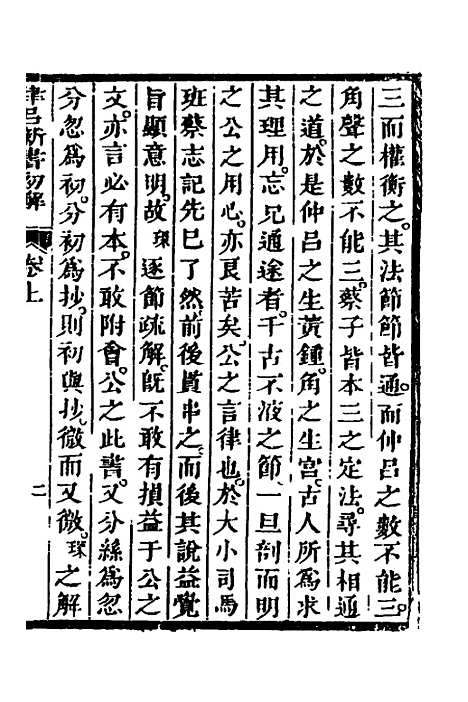 三而權衡之其法節節皆通而仲呂之數不能三
角聲之數不能三蔡子皆本三之定法尋其相通
之道於是仲呂之生黃鍾角之生宮古人所爲求
其理用忘兄通途者千古不液之節一旦剖而明
之公之用心亦良苦矣公之言律也於大小司馬
班蔡志記先巳了然前後貫串之而後其說益覺
旨顯意明故琛逐節疏解旣不敢有損益于公之
文亦言必有本不敢附會公之此書又分絲爲忽
分忽爲初分初爲抄則初與抄微而又微琛之解
律呂新書初解
卷上
二